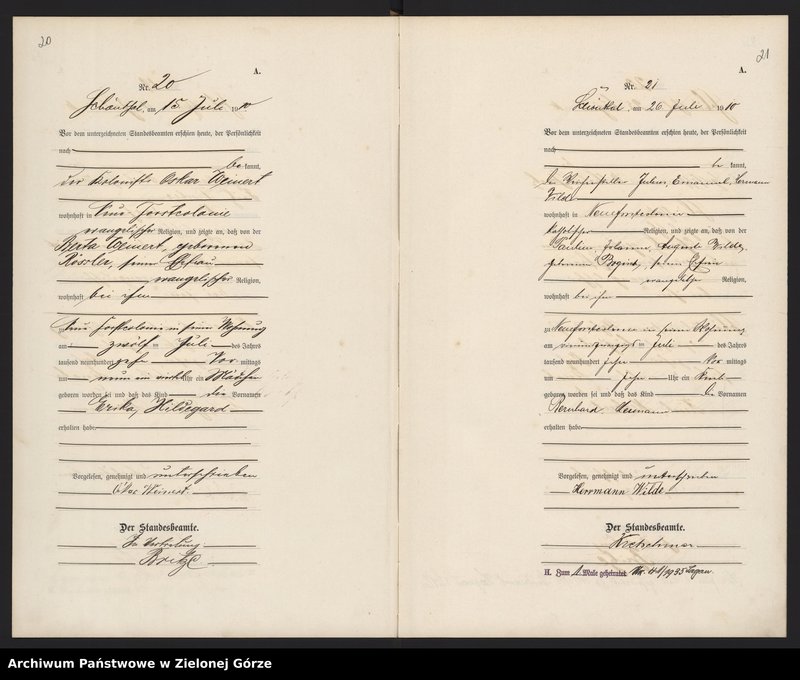 20
A.
Nr. 20
am 15. Juli 1910
Vor dem unterzeichneten Standesbeamten erschien heute, der Persönlichkeit
nach
be kannt,
der Kolonist Oskar Weinert
wohnhaft in Neu Forstcolonie
evangelischer Religion, und zeigte an, daß von der
Berta Weinert, geborenen
Rössler, seiner Ehefrau
evangelischer Religion,
wohnhaft bei ihm
zu Neu Forstcolonie in seiner Wohnung
am zwölften Juli des Jahres
tausend neunhundert zehn Vor mittags
um neun ein viertel Uhr ein Mädchen
geboren worden sei und daß das Kind die Vornamen
Erika, Hildegard
erhalten habe
Vorgelesen, genehmigt und unterschrieben
Oskar Weinert
Der Standesbeamte.
In Vertretung
21
A.
Nr. 21
am 26. Juli 1910
Vor dem unterzeichneten Standesbeamten erschien heute, der Persönlichkeit
nach
be kannt,
Julius, Emanuel, Hermann
Wilde
wohnhaft in
Religion, und zeigte an, daß von der
Johanna, Auguste Wilde,
geborenen seiner Ehefrau
evangelischer Religion,
wohnhaft bei ihm
zu in seiner Wohnung
am Juli des Jahres
tausend neunhundert zehn Vor mittags
um zehn Uhr ein Knabe
geboren worden sei und daß das Kind die Vornamen
Bernhard Hermann
erhalten habe
Vorgelesen, genehmigt und unterschrieben
Herrmann Wilde
Der Standesbeamte.
Kretschmer
H. Zum 1. Male geheiratet: Nr. 41/1935 Sagan
Archiwum Państwowe w Zielonej Górze